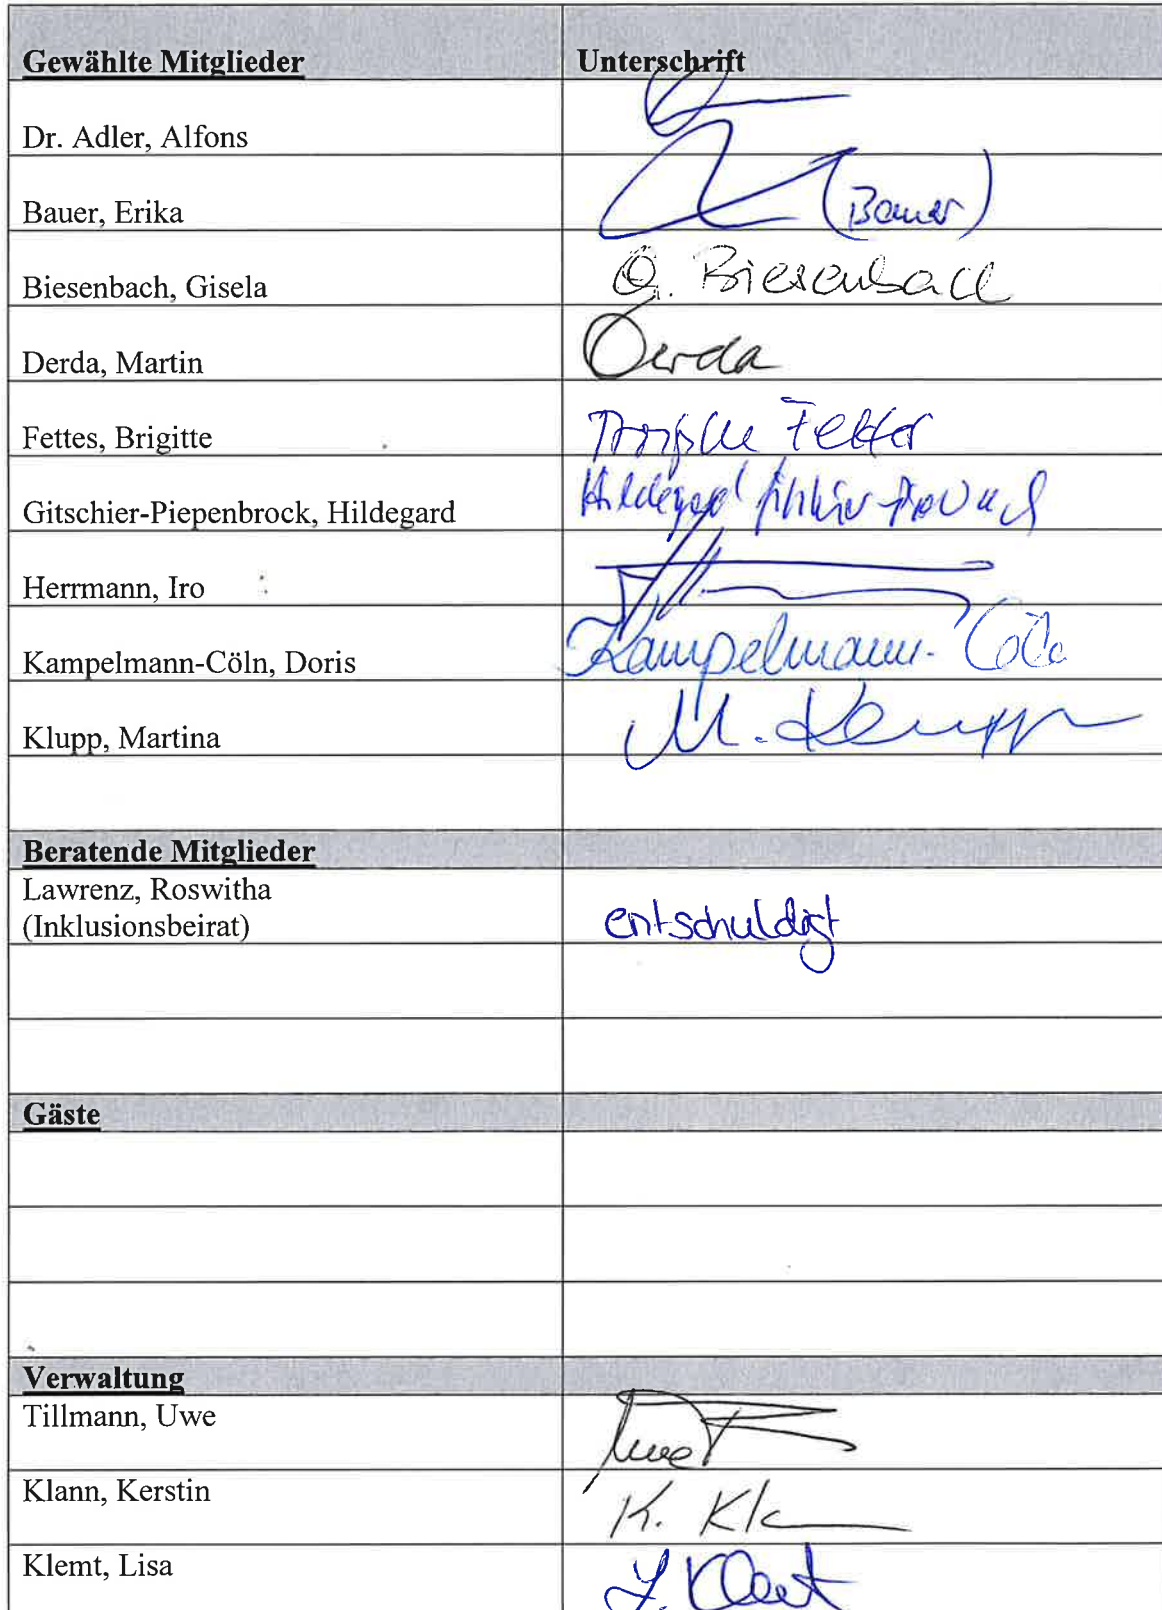 Gewählte Mitglieder Unterschrift
Dr. Adler, Alfons
Bauer, Erika (Bauer)
Biesenbach, Gisela G. Biesenbach
Derda, Martin Derda
Fettes, Brigitte
Gitschier-Piepenbrock, Hildegard Hildegard
Herrmann, Iro
Kampelmann-Cöln, Doris Kampelmann-Cöln
Klupp, Martina M. Klupp
Beratende Mitglieder
Lawrenz, Roswitha
(Inklusionsbeirat) entschuldigt
Gäste
Verwaltung
Tillmann, Uwe Uwe
Klann, Kerstin K.
Klemt, Lisa L. Klemt